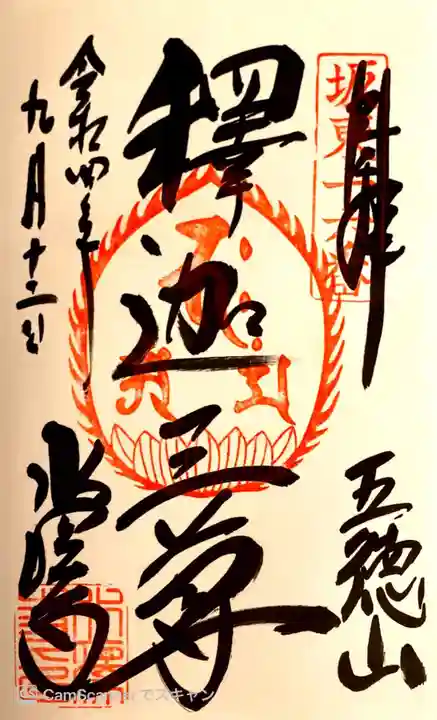 奉拝
坂東十六番
五徳山
釋迦三尊
令和四年
九月十二日
水澤寺
CamScannerでスキャン